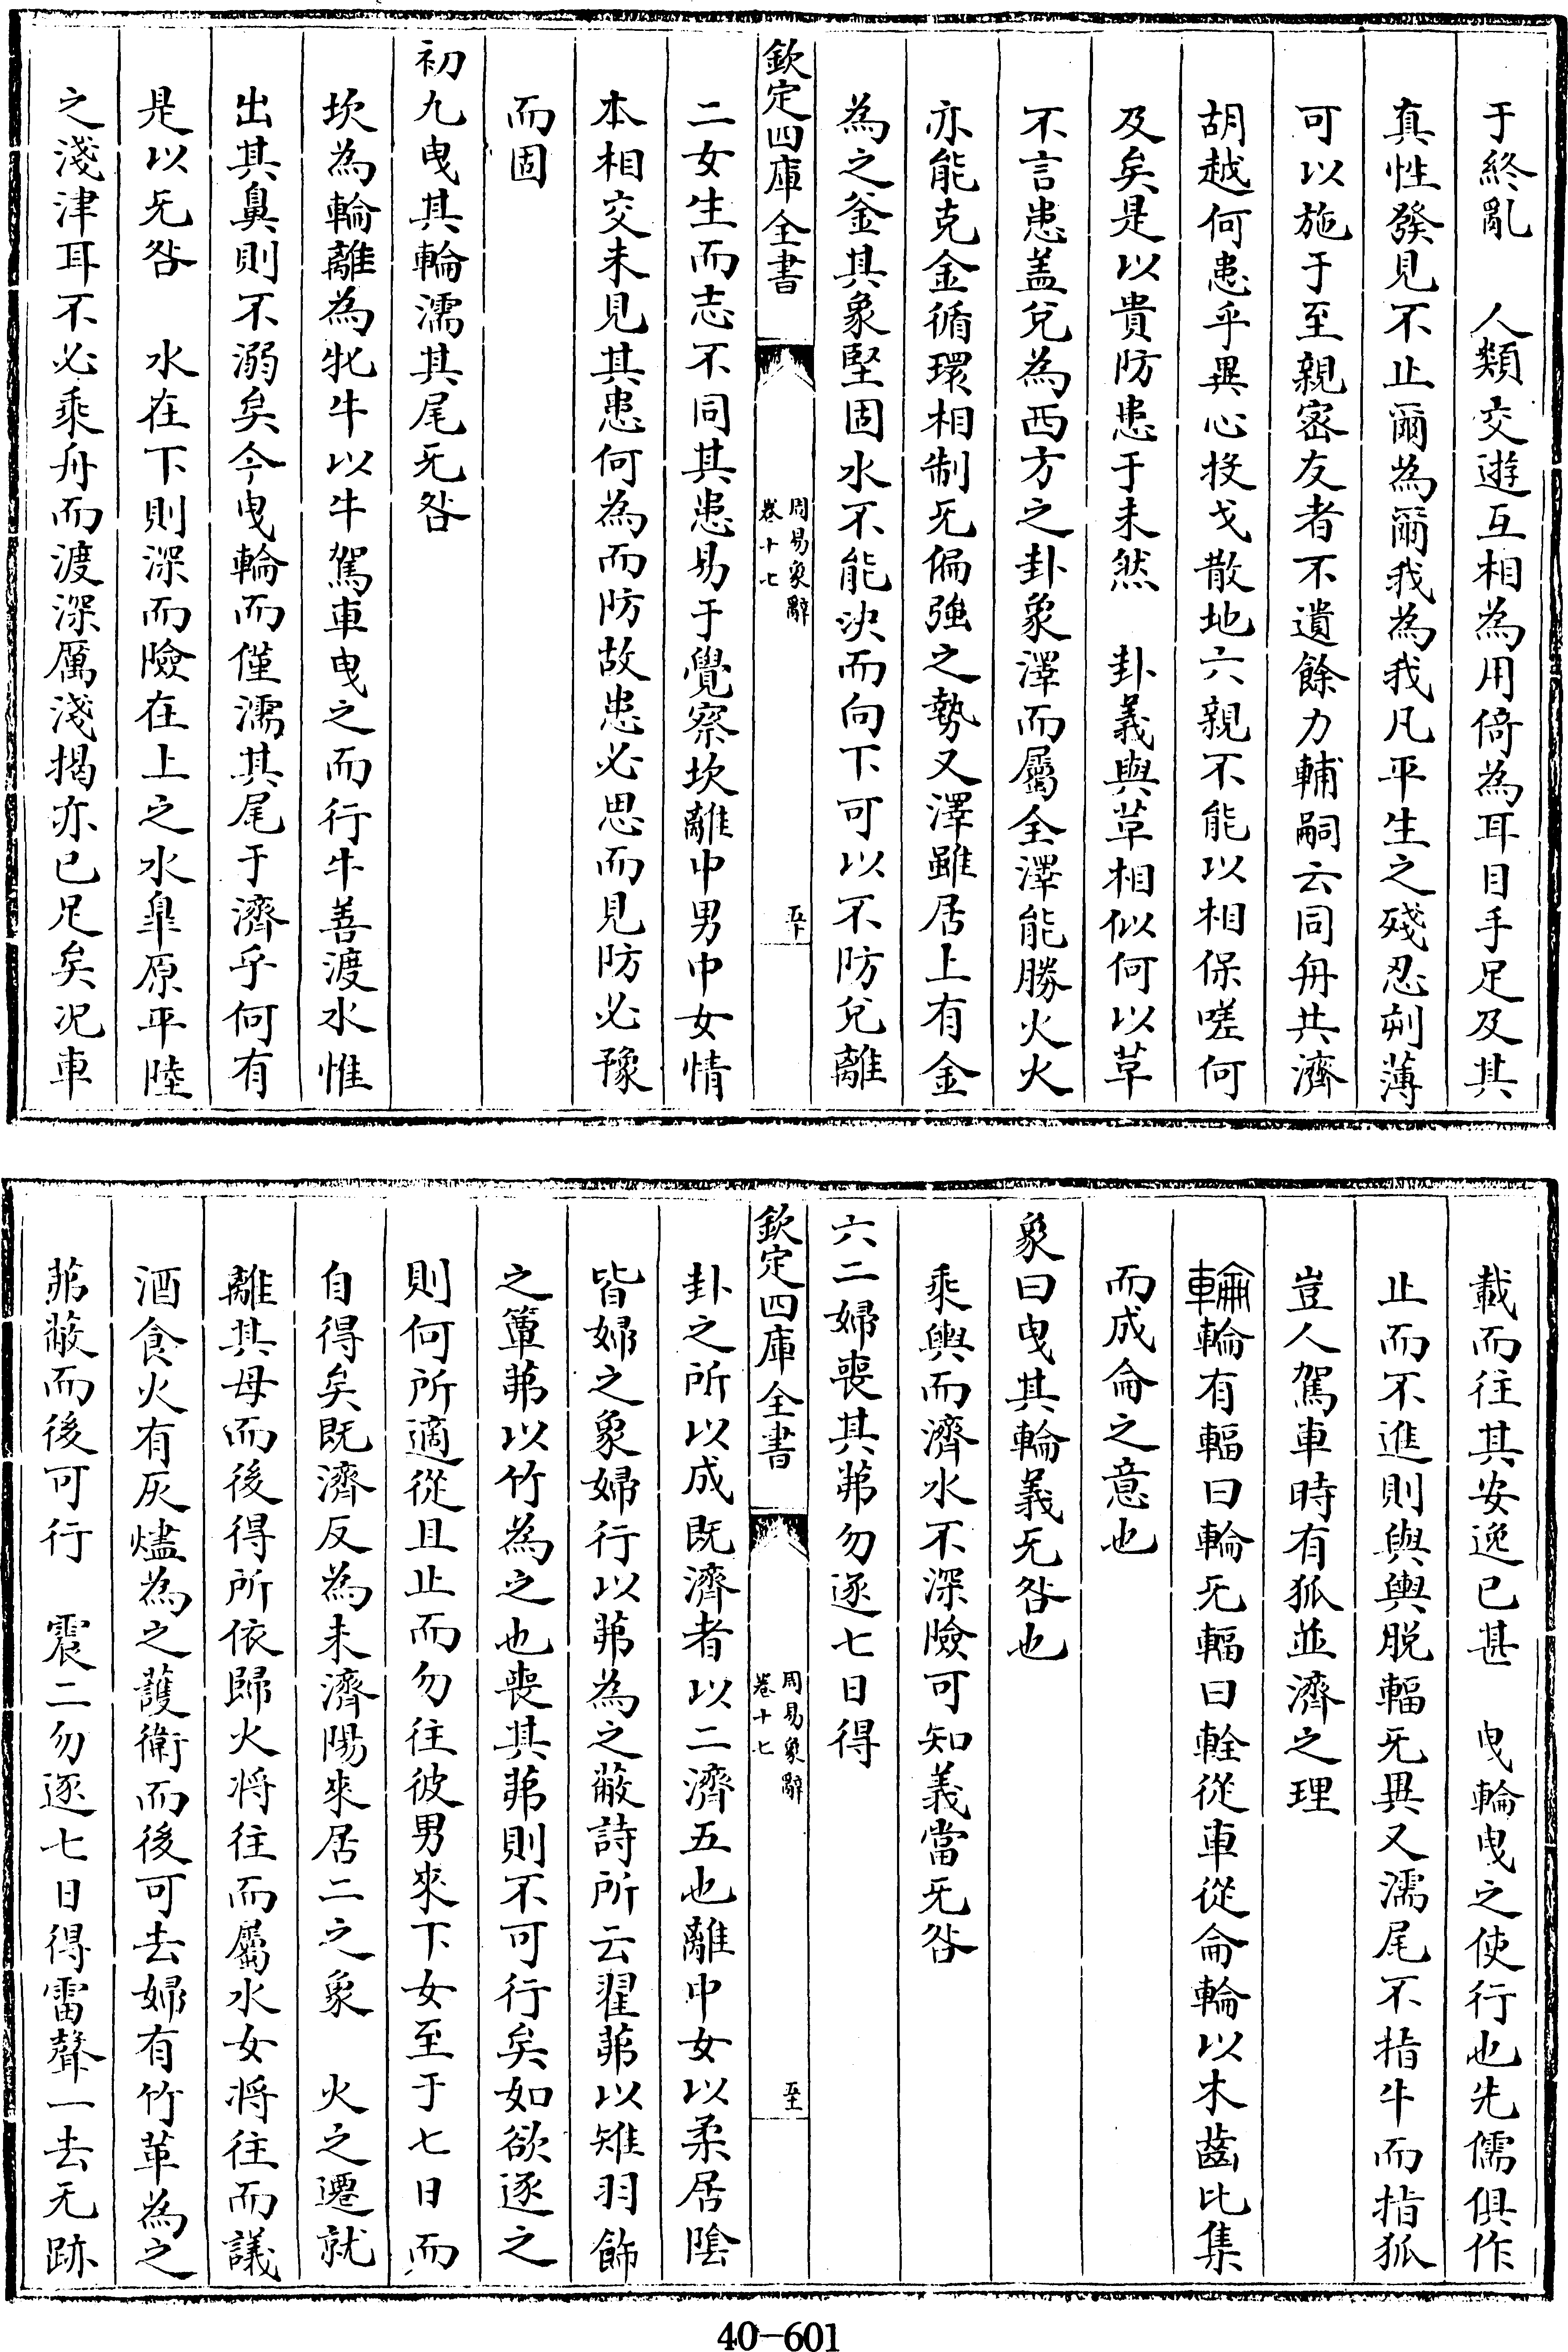 于終亂　人類交遊互相為用倚為耳目手足及其
真性發見不止爾為爾我為我凡平生之殘忍剜薄
可以施于至親密友者不遺餘力輔嗣云同舟共濟
胡越何患乎異心投戈散地六親不能以相保嗟何
及矣是以貴防患于未然　卦義與革相似何以革
不言患盖兌為西方之卦象澤而屬金澤能勝火火
亦能克金循環相制无偏強之勢又澤雖居上有金
為之釜其象堅固水不能決而向下可以不防兌離
欽定四庫全書
周易象辭
卷十七
五十
二女生而志不同其患易于覺察坎離中男中女情
本相交未見其患何為而防故患必思而見防必豫
而固
初九曳其輪濡其尾无咎
坎為輪離為牝牛以牛駕車曳之而行牛善渡水惟
出其鼻則不溺矣今曳輪而僅濡其尾于濟乎何有
是以无咎　水在下則深而險在上之水臯原平陸
之淺津耳不必乘舟而渡深厲淺揭亦已足矣况車
載而往其安逸已甚　曳輪曳之使行也先儒俱作
止而不進則與輿脱輻无異又濡尾不指牛而指狐
豈人駕車時有狐並濟之理
輪輪有輻曰輪无輻曰輇從車從侖輪以木齒比集
而成侖之意也
象曰曳其輪義无咎也
乘輿而濟水不深險可知義當无咎
六二婦喪其茀勿逐七日得
欽定四庫全書
周易象辭
卷十七
五十一
卦之所以成既濟者以二濟五也離中女以柔居陰
皆婦之象婦行以茀為之蔽詩所云翟茀以雉羽飾
之簟茀以竹為之也喪其茀則不可行矣如欲逐之
則何所適從且止而勿往彼男來下女至于七日而
自得矣既濟反為未濟陽來居二之象　火之遷就
離其母而後得所依歸火将往而屬水女将往而議
酒食火有灰燼為之護衛而後可去婦有竹革為之
茀蔽而後可行　震二勿逐七日得雷聲一去无跡
40-601